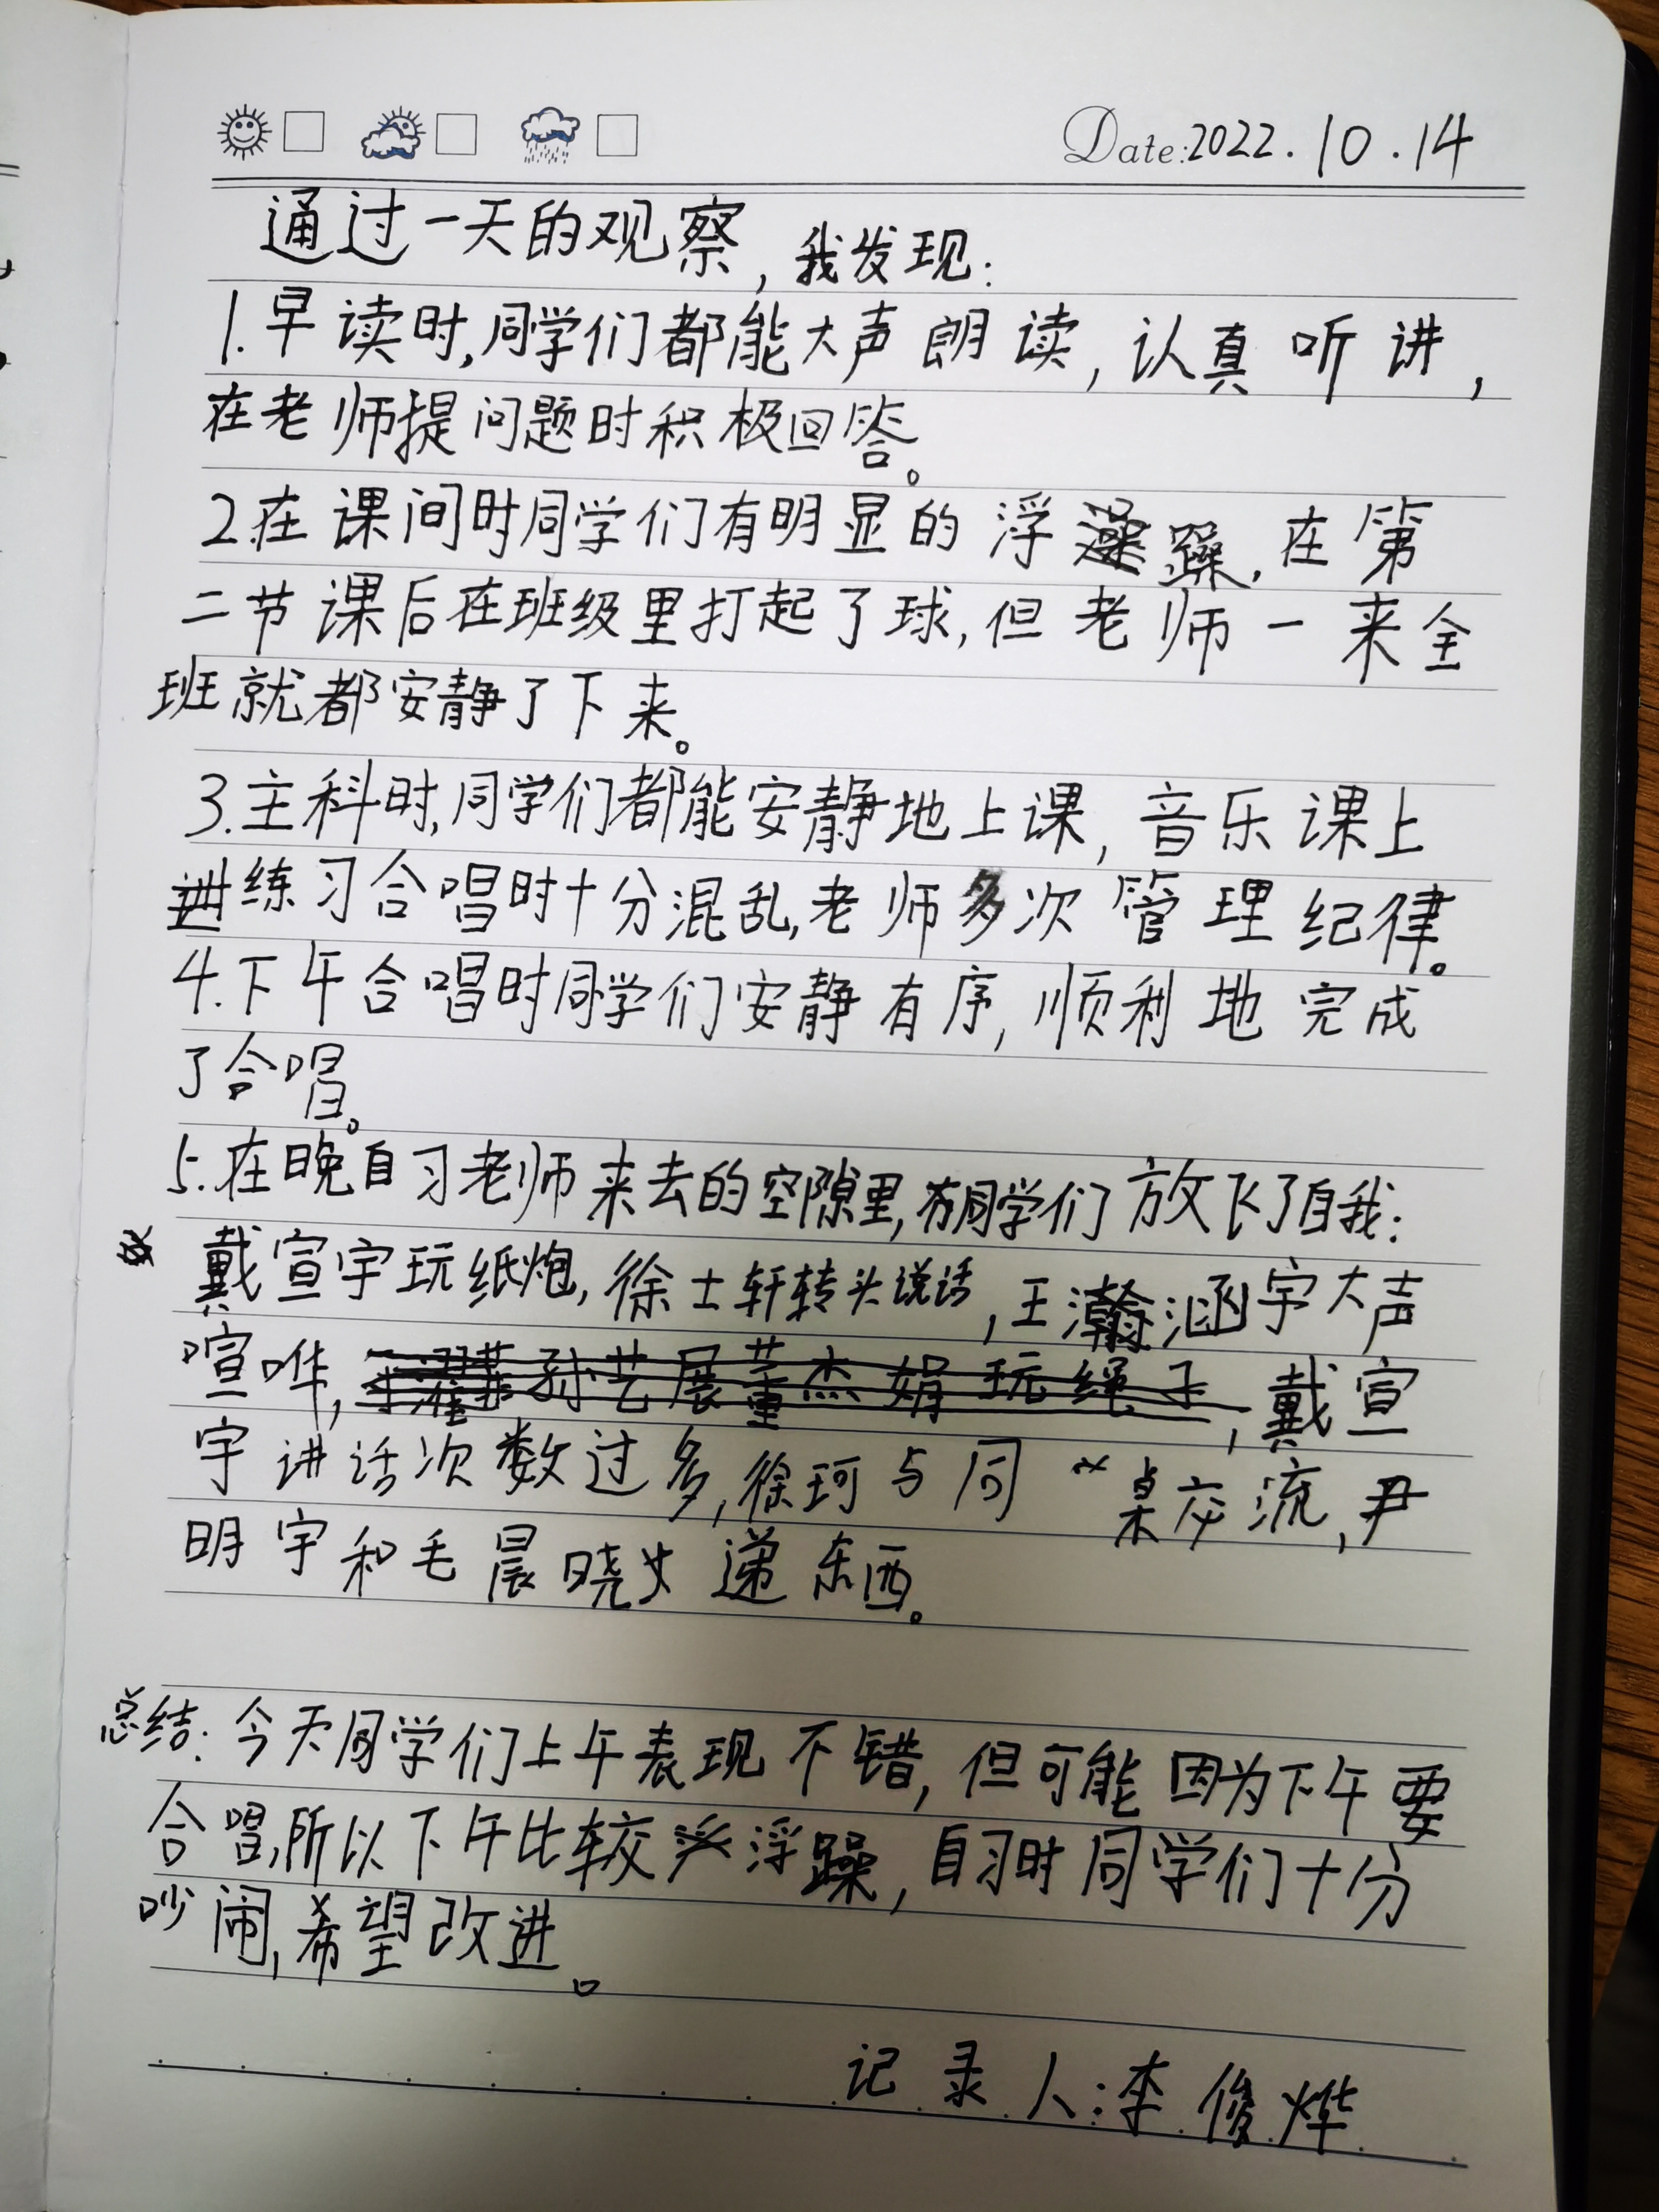 Date: 2022.10.14
通过一天的观察,我发现:
1.早读时,同学们都能大声朗读,认真听讲,
在老师提问题时积极回答。
2.在课间时同学们有明显的浮躁,在第
二节课后在班级里打起了球,但老师一来全
班就都安静了下来。
3.主科时,同学们都能安静地上课,音乐课上
练习合唱时十分混乱,老师多次管理纪律。
4.下午合唱时同学们安静有序,顺利地完成
了合唱。
5.在晚自习老师来去的空隙里,有同学们放飞了自我:
戴宣宇玩纸炮,徐士轩转头说话,王瀚涵宇大声
喧哗,孙艺展董杰娟玩绳子,戴宣
宇讲话次数过多,徐珂与同桌交流,尹
明宇和毛晨晓递东西。
总结:今天同学们上午表现不错,但可能因为下午要
合唱,所以下午比较浮躁,自习时同学们十分
吵闹,希望改进。
记录人:李俊烨